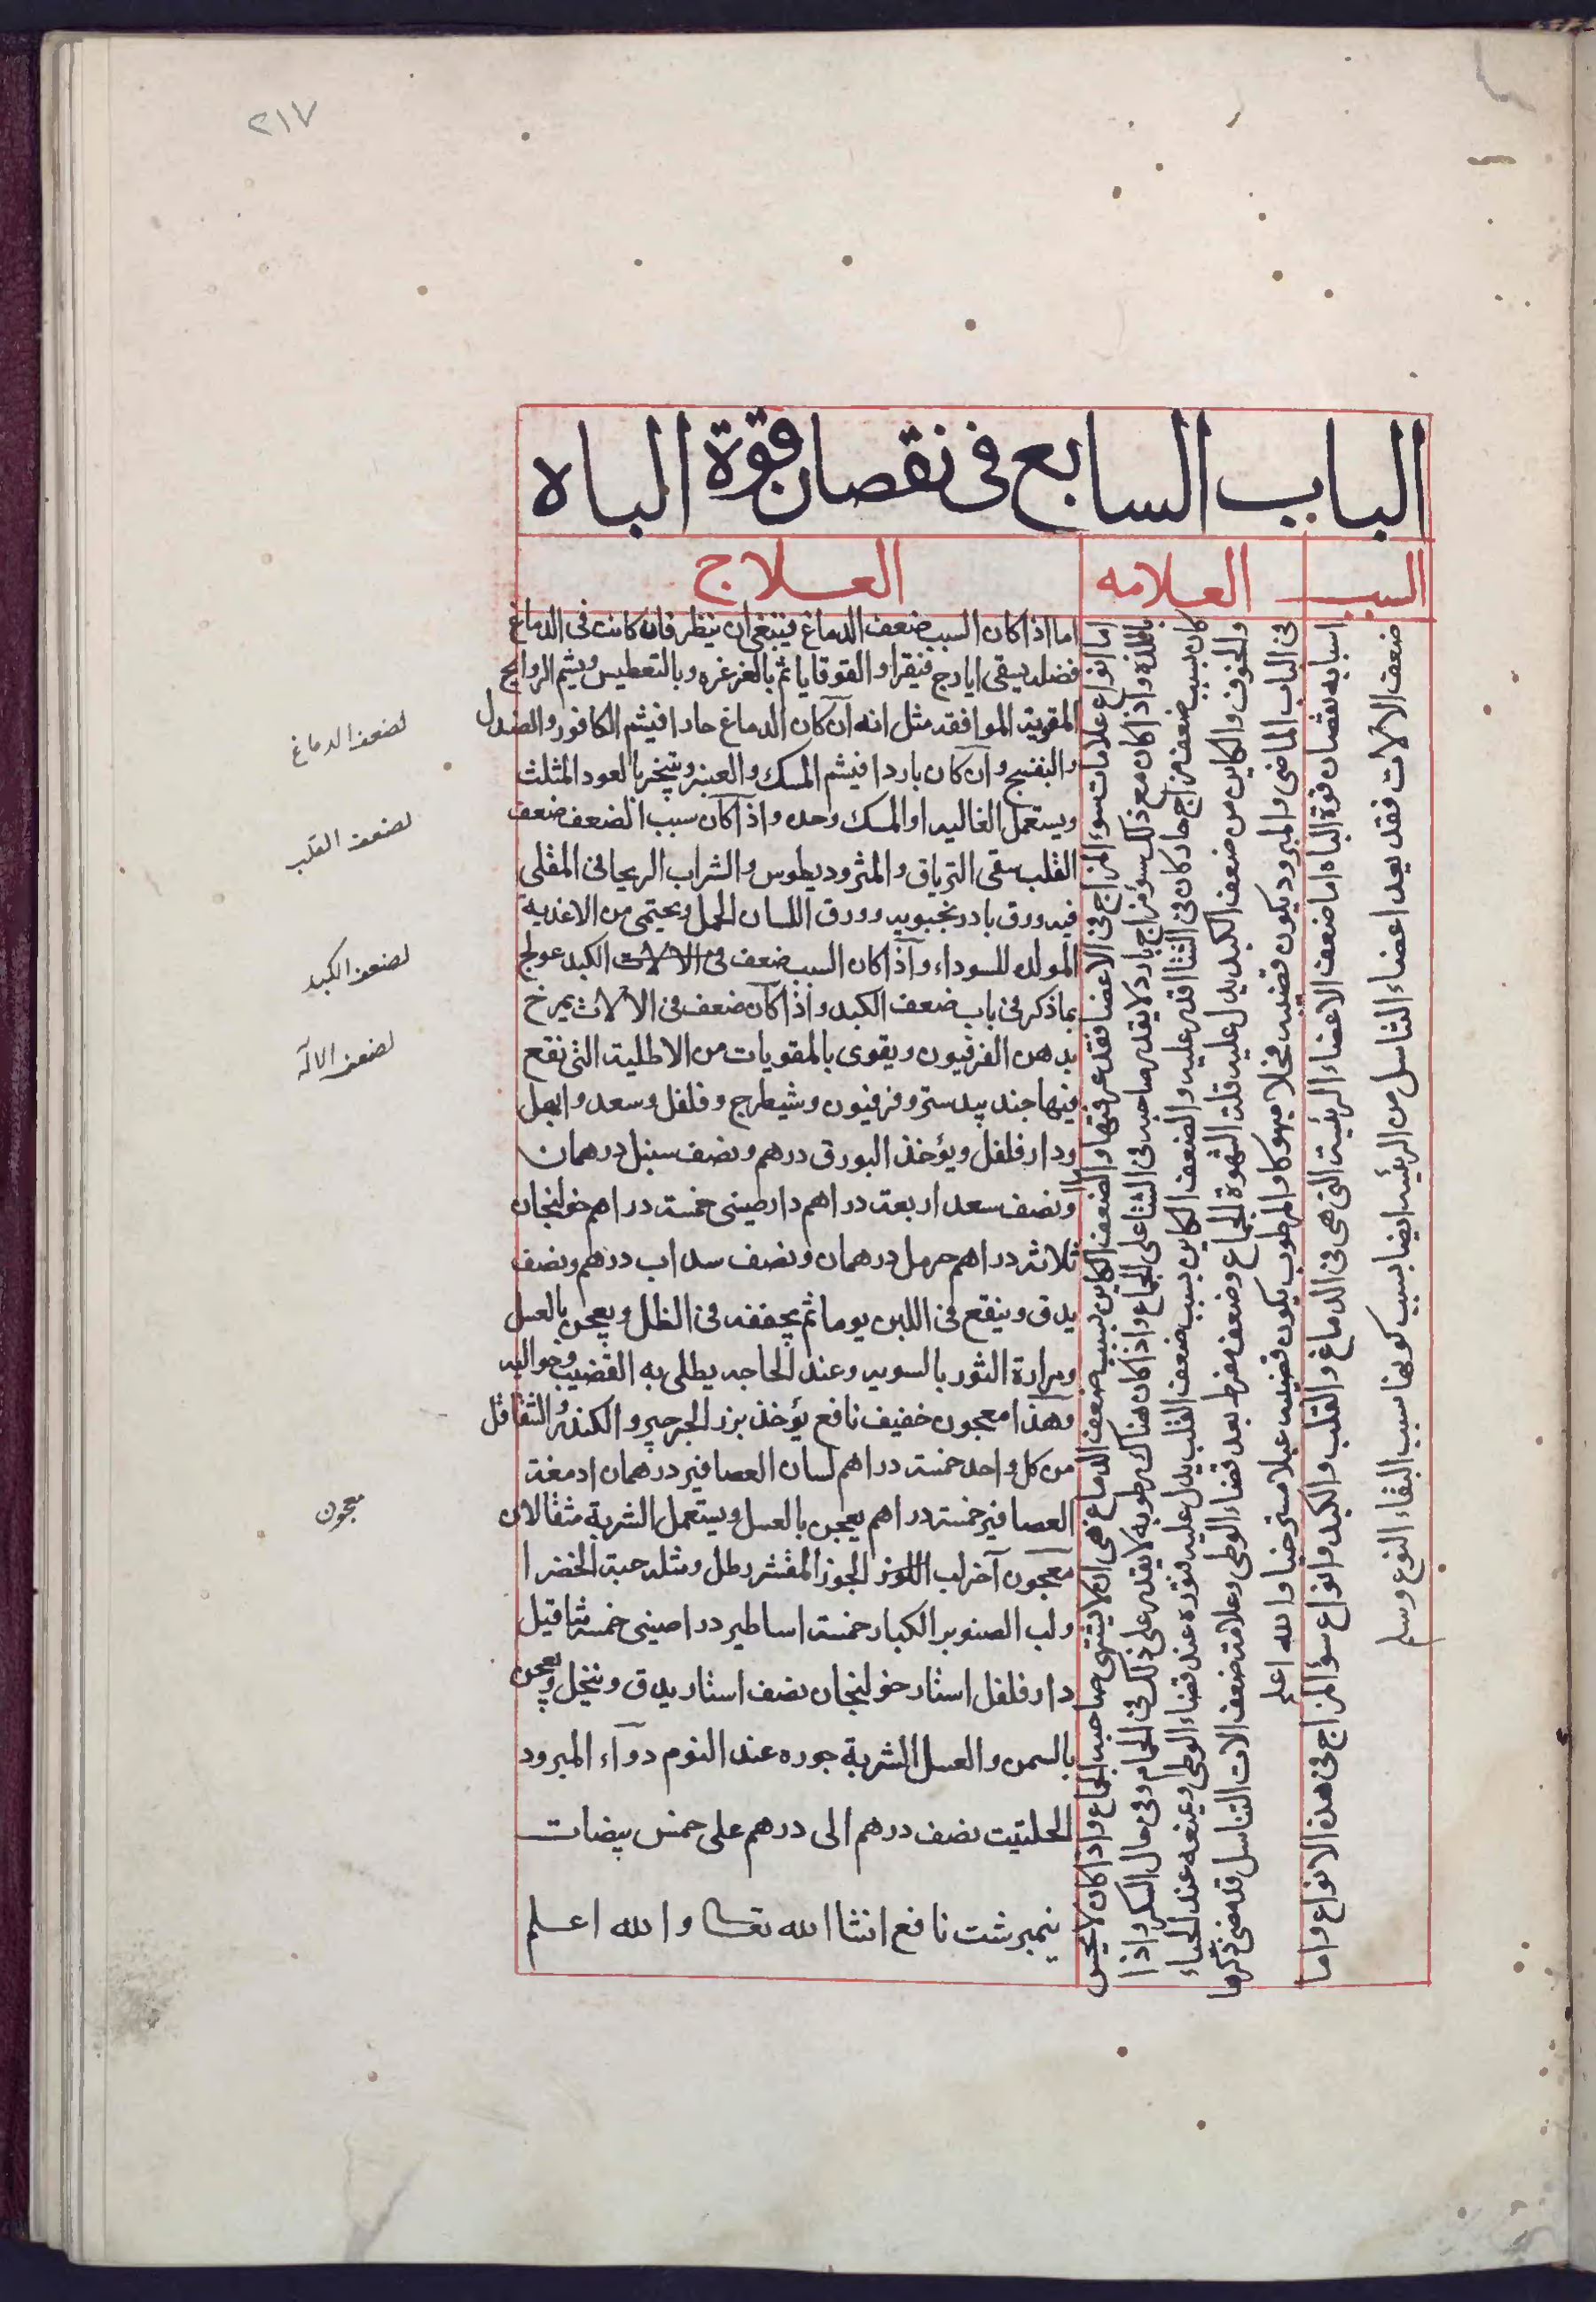 ٢١٧
الباب السابع فى نقصان قوة الباه
السبب
العلامه
العلاج
اسبابه نقصان قوة الباه اما ضعف الاعضاء الرئيسة التى هى فى الدماغ والقلب والكبد وانواع سؤ المزاج فى هذه الانواع واما
ضعف الالات فقد يعد اعضاء التناسل من الرئيسه ايضا بسبب كونها سبب البقاء النوع وسلم
اما انواع علامات سوء المزاج فى الاعضا فقد عرفتها والضعف الكاين بسبب ضعف الدماغ هى ان لا يشتهى صاحبه الجماع واذا كان لا يحس
باللذه واذا كان مع ذلك سؤ مزاج بارد لا يقدر صاحبه فى الشتا على الجماع واذا كان هناك رطوبه لا يقدر على ذلك فى الحمام وفى حال السكر واذا
كان بسبب ضعف مزاج حار كان فى الشتا اقدر عليه والضعف الكاين بسبب ضعف القلب يدل عليه فتوره عند قضاء الوطى ويمنعه عند الحياء
والخوف والكاين من ضعف الكبد يدل عليه قلة الشهوة للجماع وضعف مفرط بعد قضاء الوطى وعلامة ضعف الات التناسل قد مضى ذكرها
فى الباب الماضى والمبرود يكون قضيبه منهوكا والمرطوب يكون قضيبه عبلا مسترخيا والله اعلم
اما اذا كان السبب ضعف الدماغ فينبغى ان ينظر فان كانت فى الدماغ
فضله يسقى ايارج فيقرا والقوقايا ثم بالغرغره وبالتعطيس ويشم الروايح
المقوية الموافقه مثل انه ان كان الدماغ حارا فيشم الكافور والصندل
والبنفسج وان كان باردا فيشم المسك والعنبر ويتبخر بالعود المثلث
ويستعمل الغاليه او المسك وحده واذا كان سبب الضعف ضعف
القلب سقى الترياق والمثروديطوس والشراب الريحانى المقلى
فيه ورق بادرنجبويه وورق اللسان الحمل ويحتمى من الاغذية
المولده للسوداء واذا كان السبب ضعف فى الالات الكبد عولج
بما ذكر فى باب ضعف الكبد واذا كان ضعف فى الالات يمرخ
بدهن الفرفيون ويقوى بالمقويات من الاطلية التى نقع
فيها جندبيدستر وفرفيون وشيطرج وفلفل وسعد وابهل
ودارفلفل ويؤخذ البورق درهم ونصف سنبل درهمان
ونصف سعد اربعة دراهم دارصينى خمسة دراهم خولنجان
ثلاثة دراهم حرمل درهمان ونصف سداب درهم ونصف
يدق وينقع فى اللبن يوما ثم يجففه فى الظل ويعجن بالعسل
ومرارة الثور بالسويه وعند الحاجه يطلى به القضيب وحواليه
وهذا معجون خفيف نافع يؤخذ بزر الجرجير والكندر والشقاقل
من كل واحد خمسة دراهم لسان العصافير درهمان ادمغة
العصافير خمسة دراهم يعجن بالعسل ويستعمل الشربة مثقالان
معجون آخر لب اللوز الجوز المقشر رطل ومثله حبة الخضرا
ولب الصنوبر الكبار خمسة اساطير دراصينى خمسة مثاقيل
دارفلفل استار خولنجان نصف استار يدق وينخل ويعجن
بالسمن والعسل الشربة جوره عند النوم دوآء المبرود
الحلتيت نصف درهم الى درهم على خمس بيضات
نيمبرشت نافع انشا الله تعالى والله اعلم
لضعف الدماغ
لضعف القلب
لضعف الكبد
لضعف الاله
معجون